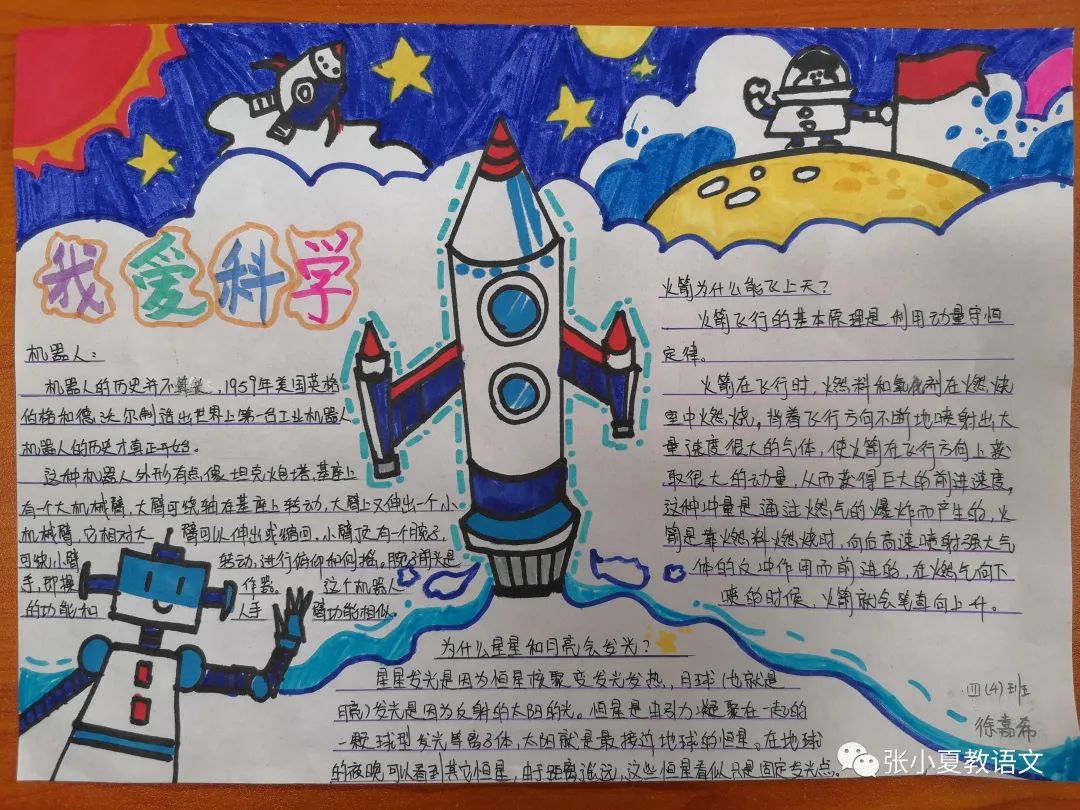 我爱科学
机器人：
机器人的历史并不算长，1959年美国英格
伯格和德沃尔制造出世界上第一台工业机器人
机器人的历史才真正开始。
这种机器人外形有点像坦克火炮塔，基座上
有一个大机械臂，大臂可绕轴在基座上转动，大臂上又伸出一个小
机械臂，它相对大臂可以伸出或缩回，小臂顶有一个腕子，
可绕小臂转动，进行俯仰和侧摇。腕子前头是
手，即操作器。这个机器人
的功能和人手臂功能相似。
火箭为什么能飞上天？
火箭飞行的基本原理是利用动量守恒
定律。
火箭在飞行时，燃料和氧化剂在燃烧
室中燃烧，背着飞行方向不断地喷射出大
量速度很大的气体，使火箭在飞行方向上获
取很大的动量，从而获得巨大的前进速度。
这种冲量是通过燃气的爆炸而产生的，火
箭是靠燃料燃烧时，向后高速喷射强大气
体的反冲作用而前进的，在燃气向下
喷的时候，火箭就会笔直向上升。
为什么星星和月亮会发光？
星星发光是因为恒星核聚变发光发热，月球（也就是
月亮）发光是因为反射的太阳的光。恒星是由引力凝聚在一起的
一颗球型发光等离子体，太阳就是最接近地球的恒星。在地球
的夜晚可以看到其它恒星，由于距离遥远，这些恒星看似只是固定发光点。
四(4)班
徐嘉希
张小夏教语文